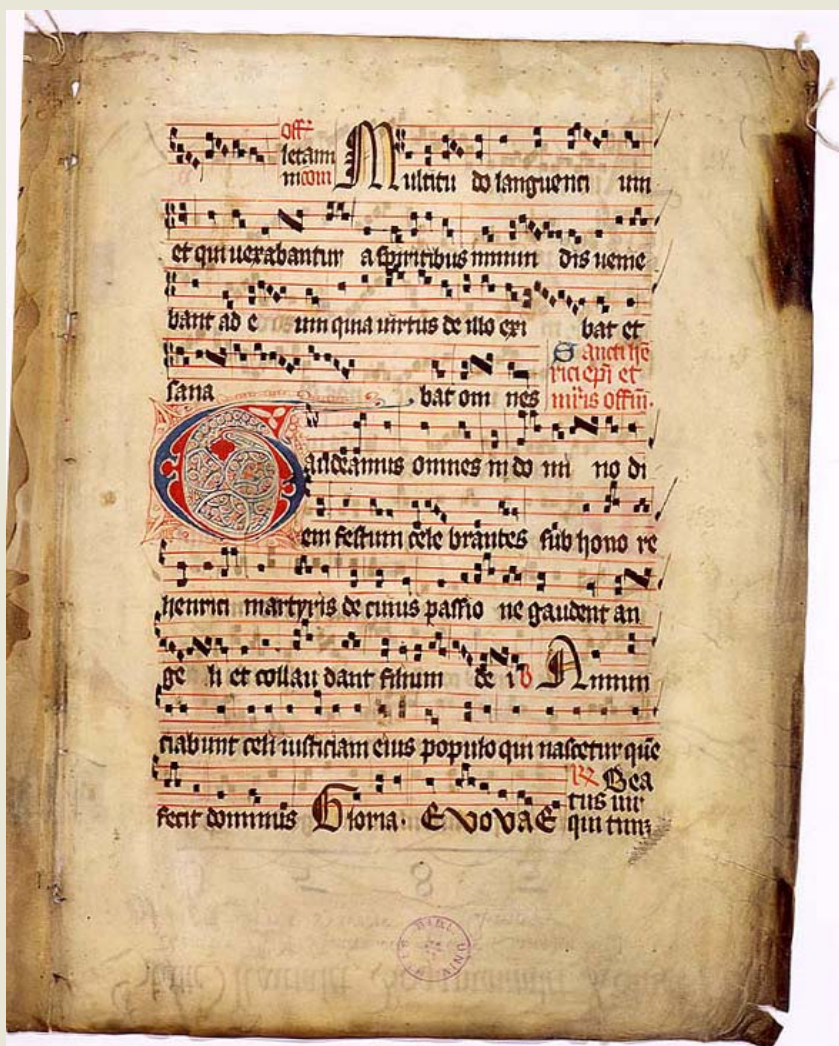 off̄
letami
ni com
Multitu do languenti um
et qui uexabantur a spiritibus immun dis uenie
bant ad e um quia uirtus de illo exi bat et
sana bat om nes
Sancti hē
rici ep̄i et
mr̄is offm̄.
Gaudeamus omnes in do mi no di
em festum cele brantes sub hono re
henrici martyris de cuius passio ne gaudent an
ge li et collau dant filium de i V Annun
ciabunt celi iusticiam eius populo qui nascetur quē
fecit dominus Gloria. E VOVAE
R Bea
tus uir
qui